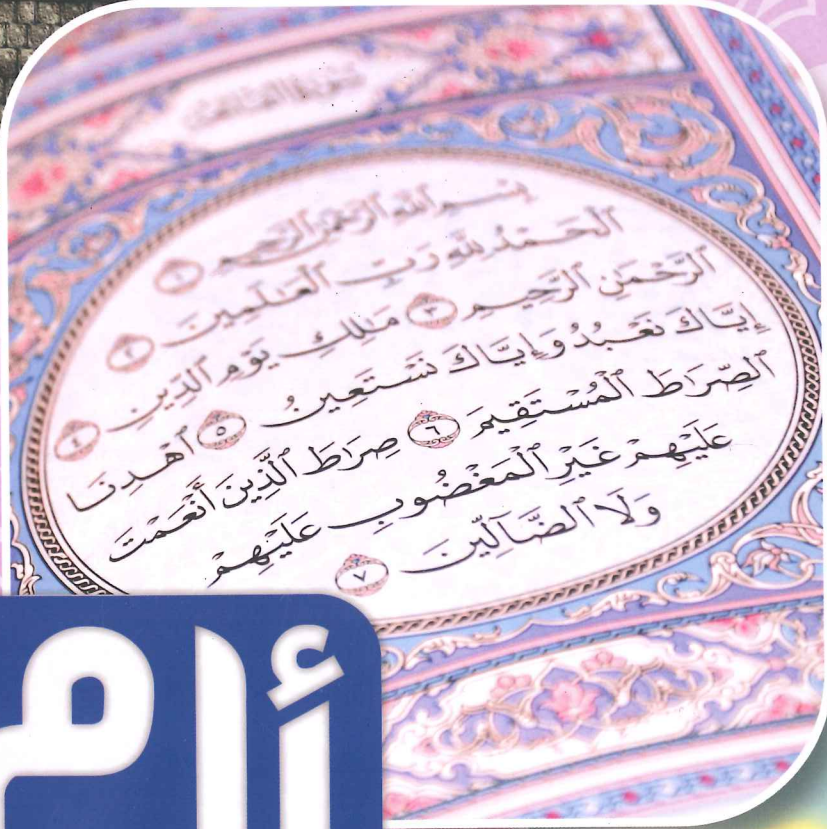 سورة الفاتحة
بِسْمِ ٱللَّهِ ٱلرَّحْمَٰنِ ٱلرَّحِيمِ ١
ٱلْحَمْدُ لِلَّهِ رَبِّ ٱلْعَٰلَمِينَ ٢
ٱلرَّحْمَٰنِ ٱلرَّحِيمِ ٣ مَٰلِكِ يَوْمِ ٱلدِّينِ ٤
إِيَّاكَ نَعْبُدُ وَإِيَّاكَ نَسْتَعِينُ ٥ ٱهْدِنَا
ٱلصِّرَٰطَ ٱلْمُسْتَقِيمَ ٦ صِرَٰطَ ٱلَّذِينَ أَنْعَمْتَ
عَلَيْهِمْ غَيْرِ ٱلْمَغْضُوبِ عَلَيْهِمْ
وَلَا ٱلضَّآلِّينَ ٧
أام